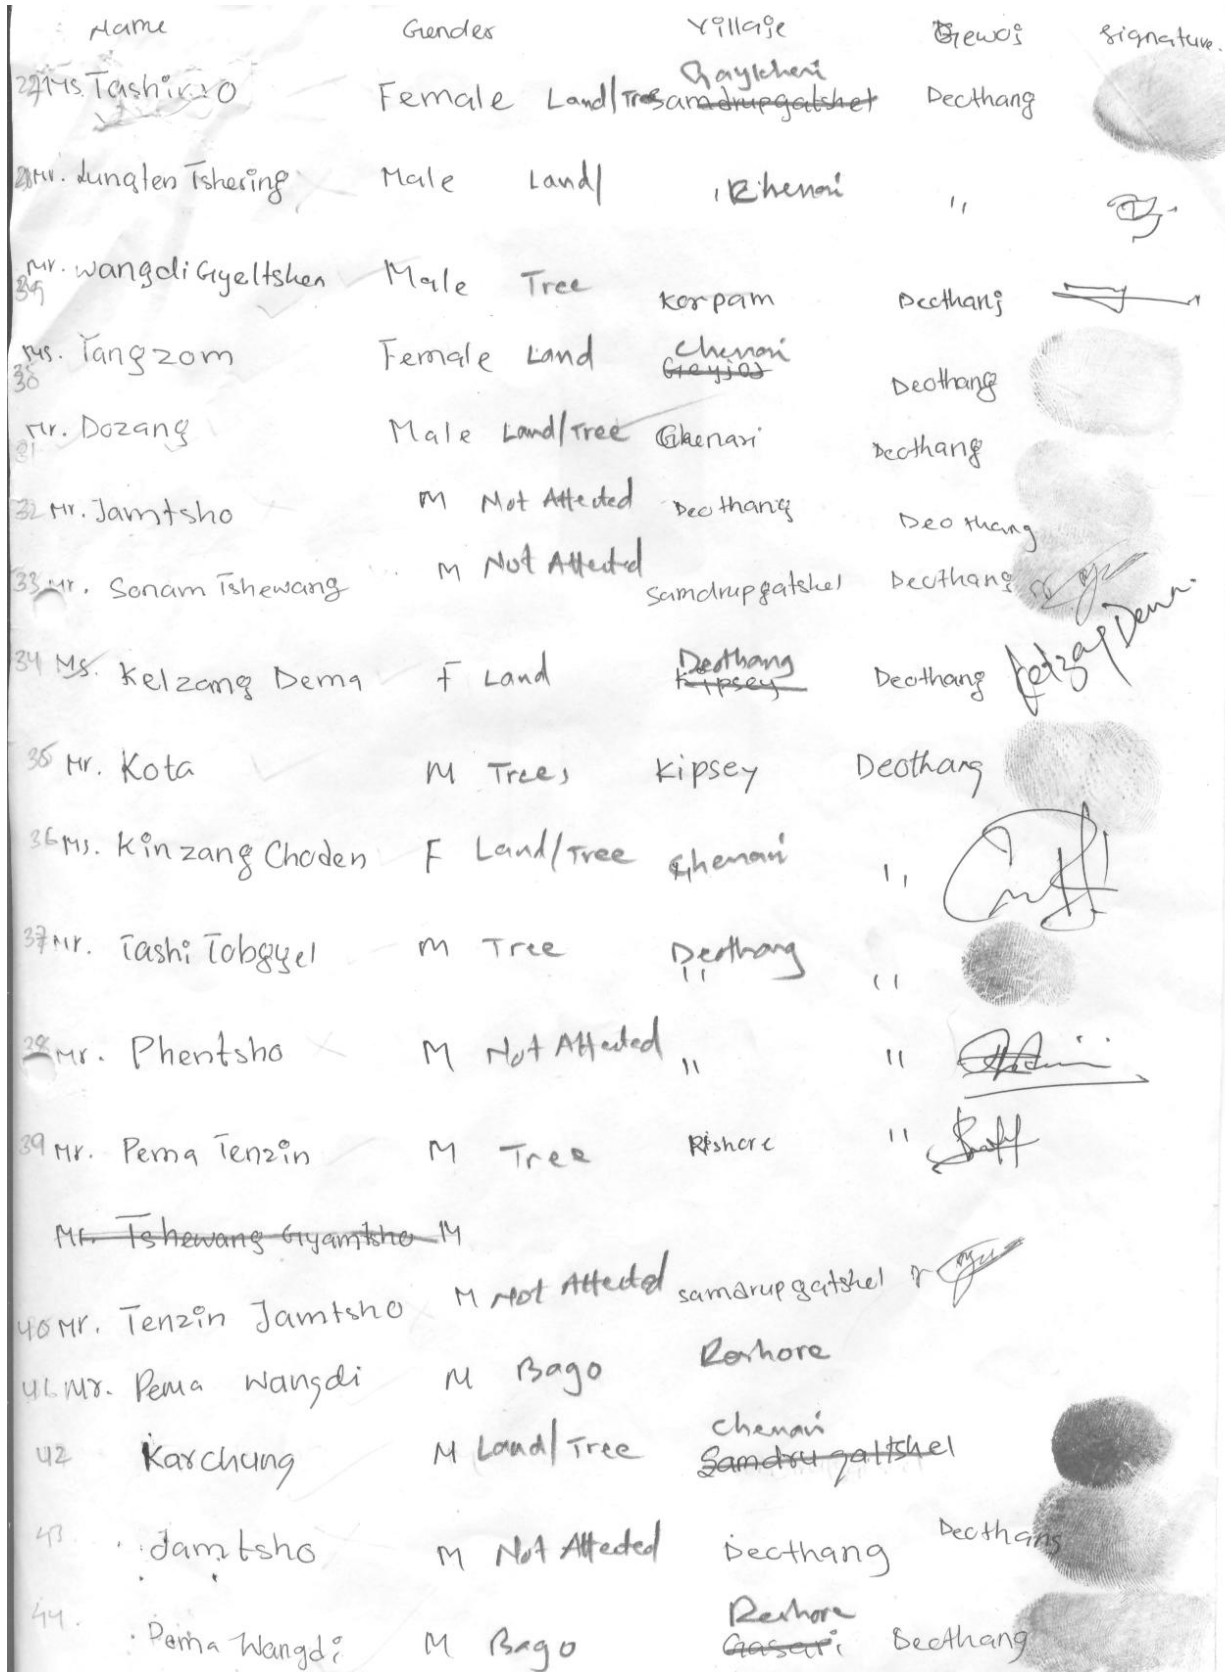 Name Gender Village Gewog Signature.
Gaykheri
27 Ms. Tashi Female Land/Tree Samdrupgatshel Deothang
28 Mr. Lungten Tshering Male Land/ Chenari ,,
Mr. Wangdi Gyeltshen Male Tree Korpam Deothang
29
Ms. Yangzom Female Land Chenari Deothang
30
Mr. Dozang Male Land/Tree Chenari Deothang
31
32 Mr. Jamtsho M Not Affected Deothang Deothang
33 Mr. Sonam Tshewang M Not Affected Samdrupgatshel Deothang
34 Ms. Kelzang Dema F Land Deothang Deothang Kelzang Dema
Kipsey
35 Mr. Kota M Trees Kipsey Deothang
36 Ms. Kinzang Choden F Land/Tree Chenari ,,
37 Mr. Tashi Tobgyel M Tree Deothang ,,
,,
38 Mr. Phentsho M Not Affected ,, ,,
39 Mr. Pema Tenzin M Tree Rishore ,,
Mr. Tshewang Gyamtsho M
40 Mr. Tenzin Jamtsho M Not Affected samdrupgatshel
41 Mr. Pema Wangdi M Bago Reshore
Chenari
42 Karchung M Land/Tree Samdrugattshel
43 Jamtsho M Not Affected Deothang Deothang
Reshore
44. Pema Wangdi M Bago Gasari Deothang